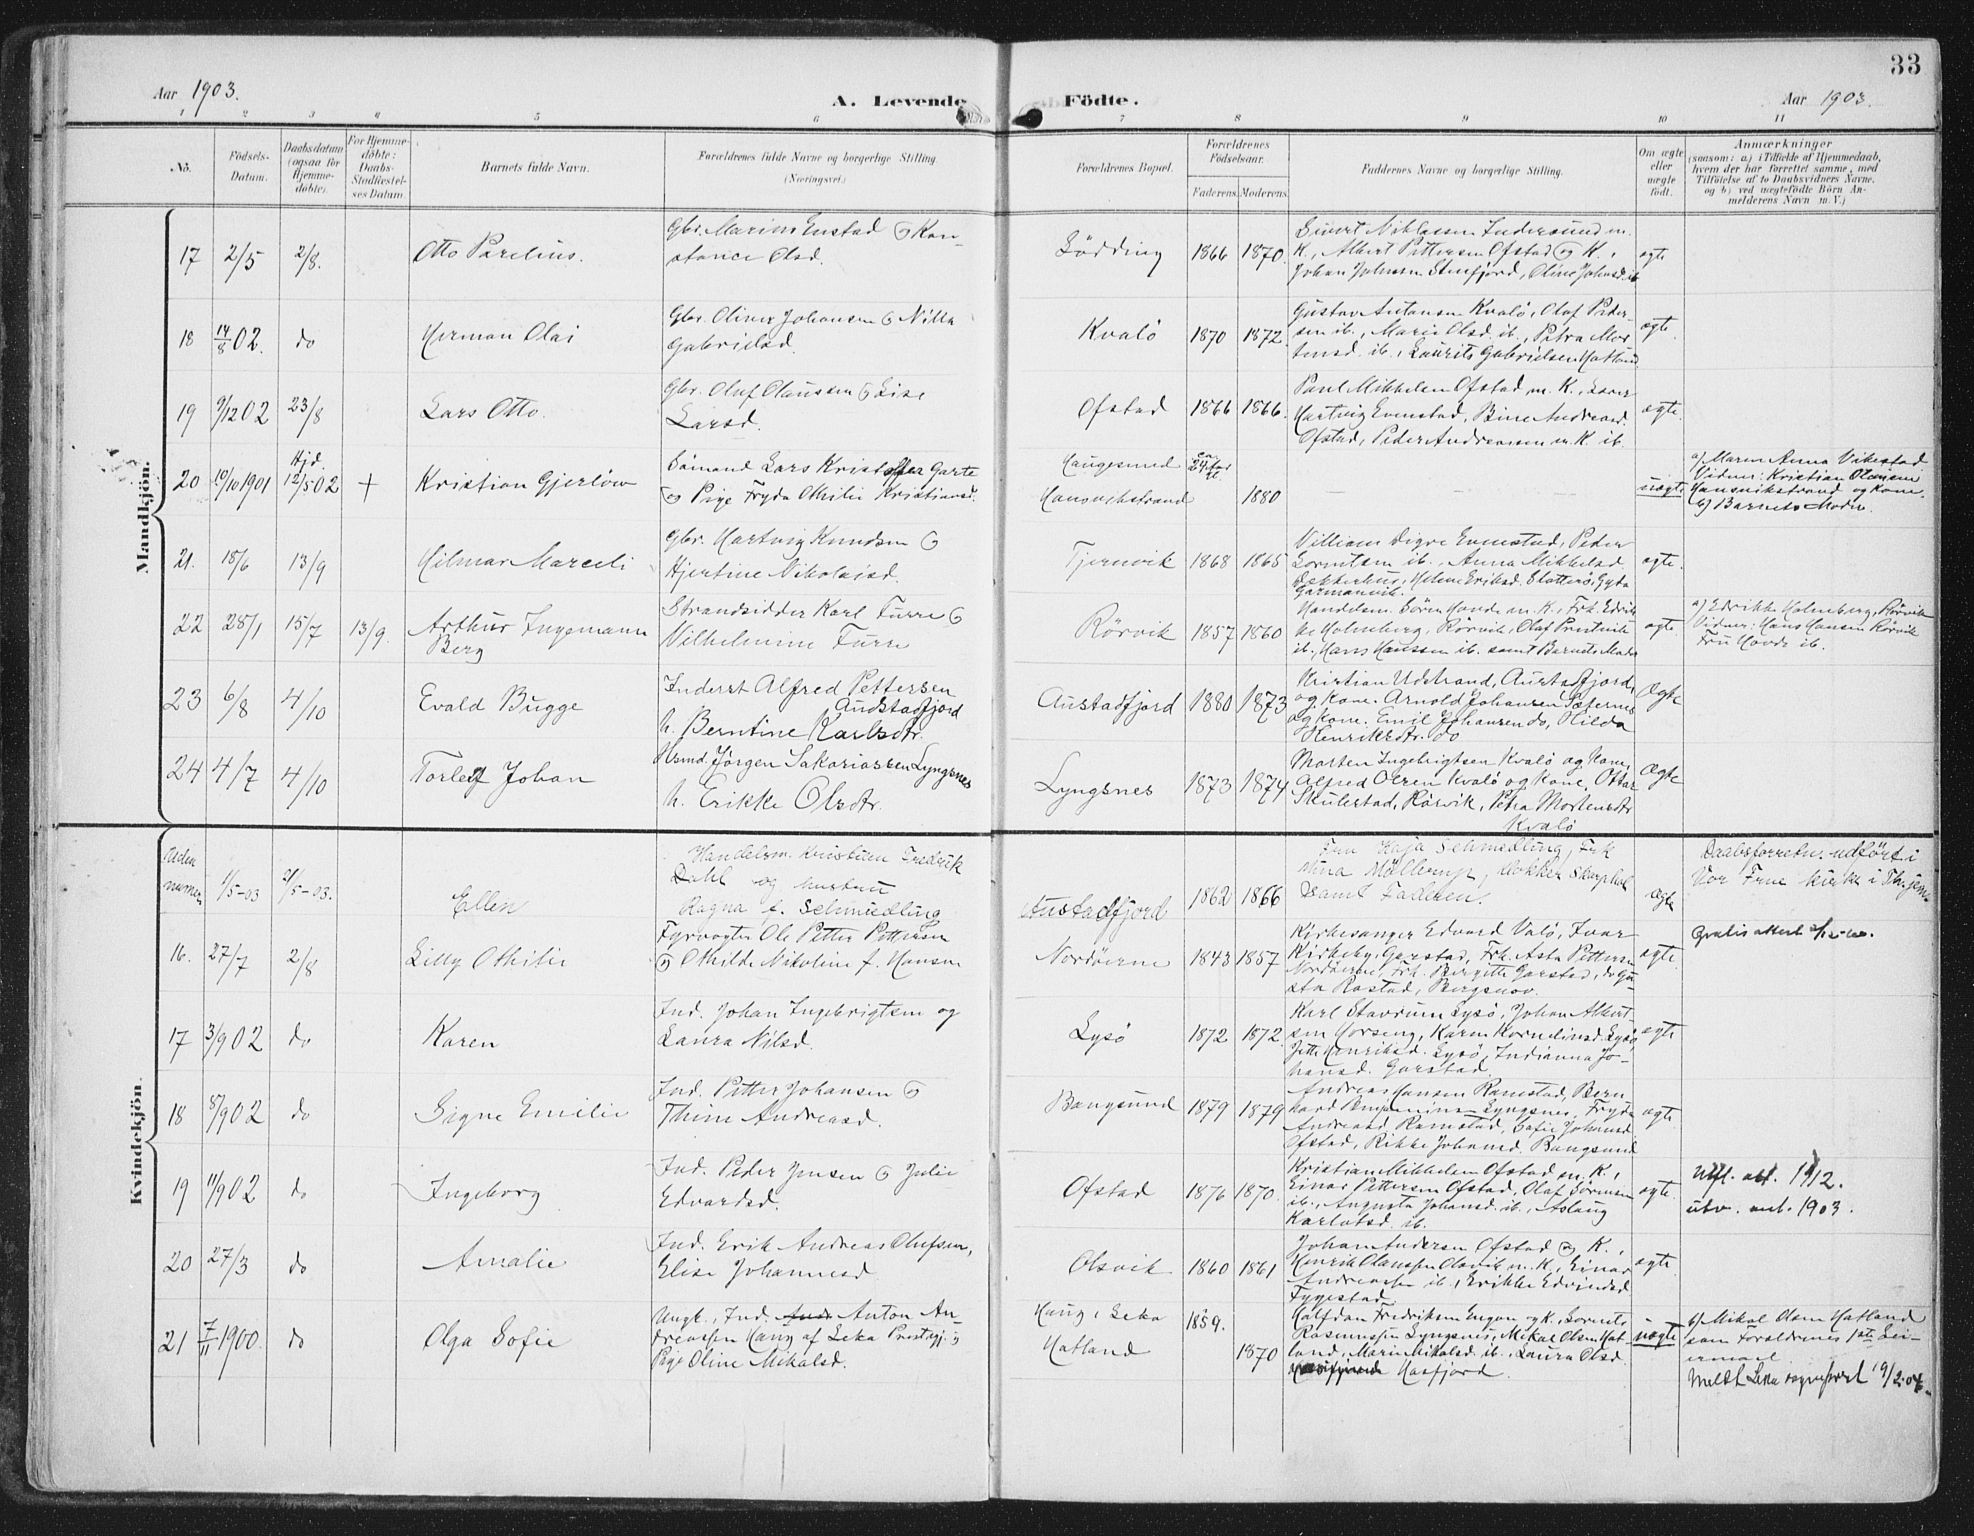 33
Aar 1903.
A. Levende Födte.
Aar 1903.
1 2 3 4 5 6 7 8 9 10 11
No.
Födsels-Datum.
Daabsdatum (ogsaa for Hjemme-döbte).
For Hjemme-döbte: Daabs-Stadfæstel-ses Datum.
Barnets fulde Navn.
Forældrenes fulde Navne og borgerlige Stilling.
(Næringsvei.)
Forældrenes Bopæl.
Forældrenes Födselsaar.
Faderens. Moderens.
Faddernes Navne og borgerlige Stilling.
Om ægte eller uægte födt.
Anmærkninger
(saasom: a) i Tilfælde af Hjemmedaab,
hvem der har forrettet samme, med
Tilföielse af to Daabsvidners Navne,
og b) ved uægtefödte Börn An-
melderens Navn m. V.)
Mandkjön.
17 2/5 2/8. Otto Parelius.
Gbr. Marius Enstad og Kon-
stance Olsd.
Södding 1866 1870.
Sivert Niklassen Indersund m.
K., Albert Pettersen Ofstad og K.,
Johan Johnsen Stenfjord, Oline Johnsd. ib
ægte
18 14/8 02. do Herman Olai
Gbr. Oliver Johansen og Nilla
Gabrielsd.
Kvalö 1870 1872.
Gustav Antonsen Kvalö, Olaf Peder-
sen ib., Marie Olsd. ib., Petra Mor-
tensd. ib., Laurits Gabrielsen Hatland
ægte.
19 9/12 02 23/8 Lars Otto.
Gbr. Oluf Olaussen og Lise
Larsd.
Ofstad 1866 1866.
Paul Mikkelsen Ofstad m. K.,
Hartvig Evenstad, Bine Andreasd.
Ofstad, Peder Andreassen m. K. ib.
ægte.
20 19/10 1901 Hjd. 12/5 02 + Kristian Gjerlöw
Sömand Lars Kristoffer Garte
og Pige Fryda Othilie Kristiansd.
Haugesund ca 24 Aar
Hansvikstrand 1880
— —
uægte
a) Maren Anna Vikestad
Vidner: Kristian Olausen
Hansvikstrand og Kone.
b) Barnets Moder.
21. 18/6 13/9 Hilmar Marceli
Gbr. Hartvig Knudsen og
Hjertine Nikolaisd.
Tjernvik 1868 1865
Villiam Digre Evenstad, Peder
Lorentsen ib., Anna Mikkelsd.
Dekkerhus, Helene Eriksd. Slotterö, Gyda
Garmannvik.
ægte.
22 28/1 15/7 13/9. Arthur Ingemann
Berg
Strandsidder Karl Furre og
Vilhelmine Furre
Rörvik 1857 1860
Handelsm. Sören Hovde m. K., Frk. Edrik-
ke Holmberg, Rörvik, Olaf Prestvik
ib., Hans Hanssen ib. samt Barnets Moder
ægte.
a) Edrikke Holmberg, Rörvik
Vidner: Hans Hansen Rörvik
Fru Hovde ib.
23 6/8 4/10 Evald Bugge
Inderst Alfred Pettersen
Audstadfjord
h. Berntine Karlsdtr.
Austadfjord 1880 1873
Kristian Udstrand, Austadfjord,
og kone. Arnold Johansen Sæternes
og kone. Emil Johansen do, Hilda
Henriksdtr. do
Ægte
24 4/7 4/10 Torleif Johan
Husmd. Jörgen Sakariassen Lyngsnes
h. Erikke Olsdtr.
Lyngsnes 1873 1874
Morten Ingebrigtsen Kvalö og Kone,
Alfred Olsen Kvalö og Kone, Ottar
Skulestad, Rörvik, Petra Mortensdtr
Kvalö
Ægte
Kvindekjön.
Uden numer 1/5-03 21/5-03. Ellen
Handelsm. Kristian Fredrik
Dahl og hustru
Ragna f. Schmedling
Austadfjord 1862 1866
Fru Kaja Schmedling, Frk
Nina Möllerup,
samt Faderen.
Ægte
Daabsforretn. udfört i
Vor Frue kirke i Th.jem.
16. 27/7 2/8 Lilly Othilie
Fyrvogter Ole Petter Pettersen
og Othilde Nikoline f. Hansen
Nordöerne 1843 1857
Kirkesanger Edvard Valö, Ivar
Kirkeby, Garstad, Frk. Asta Pettersen
Nordöerne, Frk. Bergitte Garstad, do Gu-
sta Rostad, Bergsnov.
ægte.
Gratis attest
17 3/9 02 do Karen
Ind. Johan Ingebrigtsen og
Laura Nilsd.
Lysö 1872 1872.
Karl Stavrum Lysö, Johan Albert-
sen Horseng, Karen Korneliusd. Lysö
Jette Henriksd. Lysö, Indianna Jo-
hansd. Garstad.
ægte
18 8/9 02 do Signe Emilie
Ind. Petter Johansen og
Thine Andreasd.
Bangsund 1879 1879
Andreas Hansen Ramstad, Bern-
hard Benjaminsen Lyngsnes, Fryda
Andreasd. Ramstad, Sofie Johansd.
Ofstad, Rikke Johansd. Bangsund
ægte.
19 11/9 02 do Ingeborg
Ind. Peder Jensen og Julie
Edvardsd.
Ofstad 1876 1870.
Kristian Mikkelsen Ofstad m. K.,
Einar Pettersen Ofstad, Olaf Sörensen
ib., Augusta Johansd. ib., Aslaug
Karlotsd. ib.
ægte.
Utfl. att. 1912.
utv. ant. 1903.
20 27/3 do Amalie
Ind. Erik Andreas Olufsen,
Elise Johannesd.
Olsvik 1860 1861
Johan Andersen Ofstad og K.,
Henrik Olaussen Olsvik m. K., Einar
Andreassen ib., Erikke Edvindsd.
Fygestad.
ægte.
21 7/11 1900. do Olga Sofie
Ungk., Ind. Anton An-
dreassen Haug af Leka Prestegj. og
Pige Oline Mikalsd.
Haug, Leka 1859.
Hatland 1870
Halfdan Fredriksen Engan og K., Lorents
Rasmussen Lyngsnes, Mikal Olsen Hat-
land, Marie Mikalsd. ib., Laura Olsd.
Hasfjord.
uægte
b) Mikal Olsen Hatland
som forældrenes 1ste Lei-
ermaal
Meldt Leka sogneprest 19/2 04.